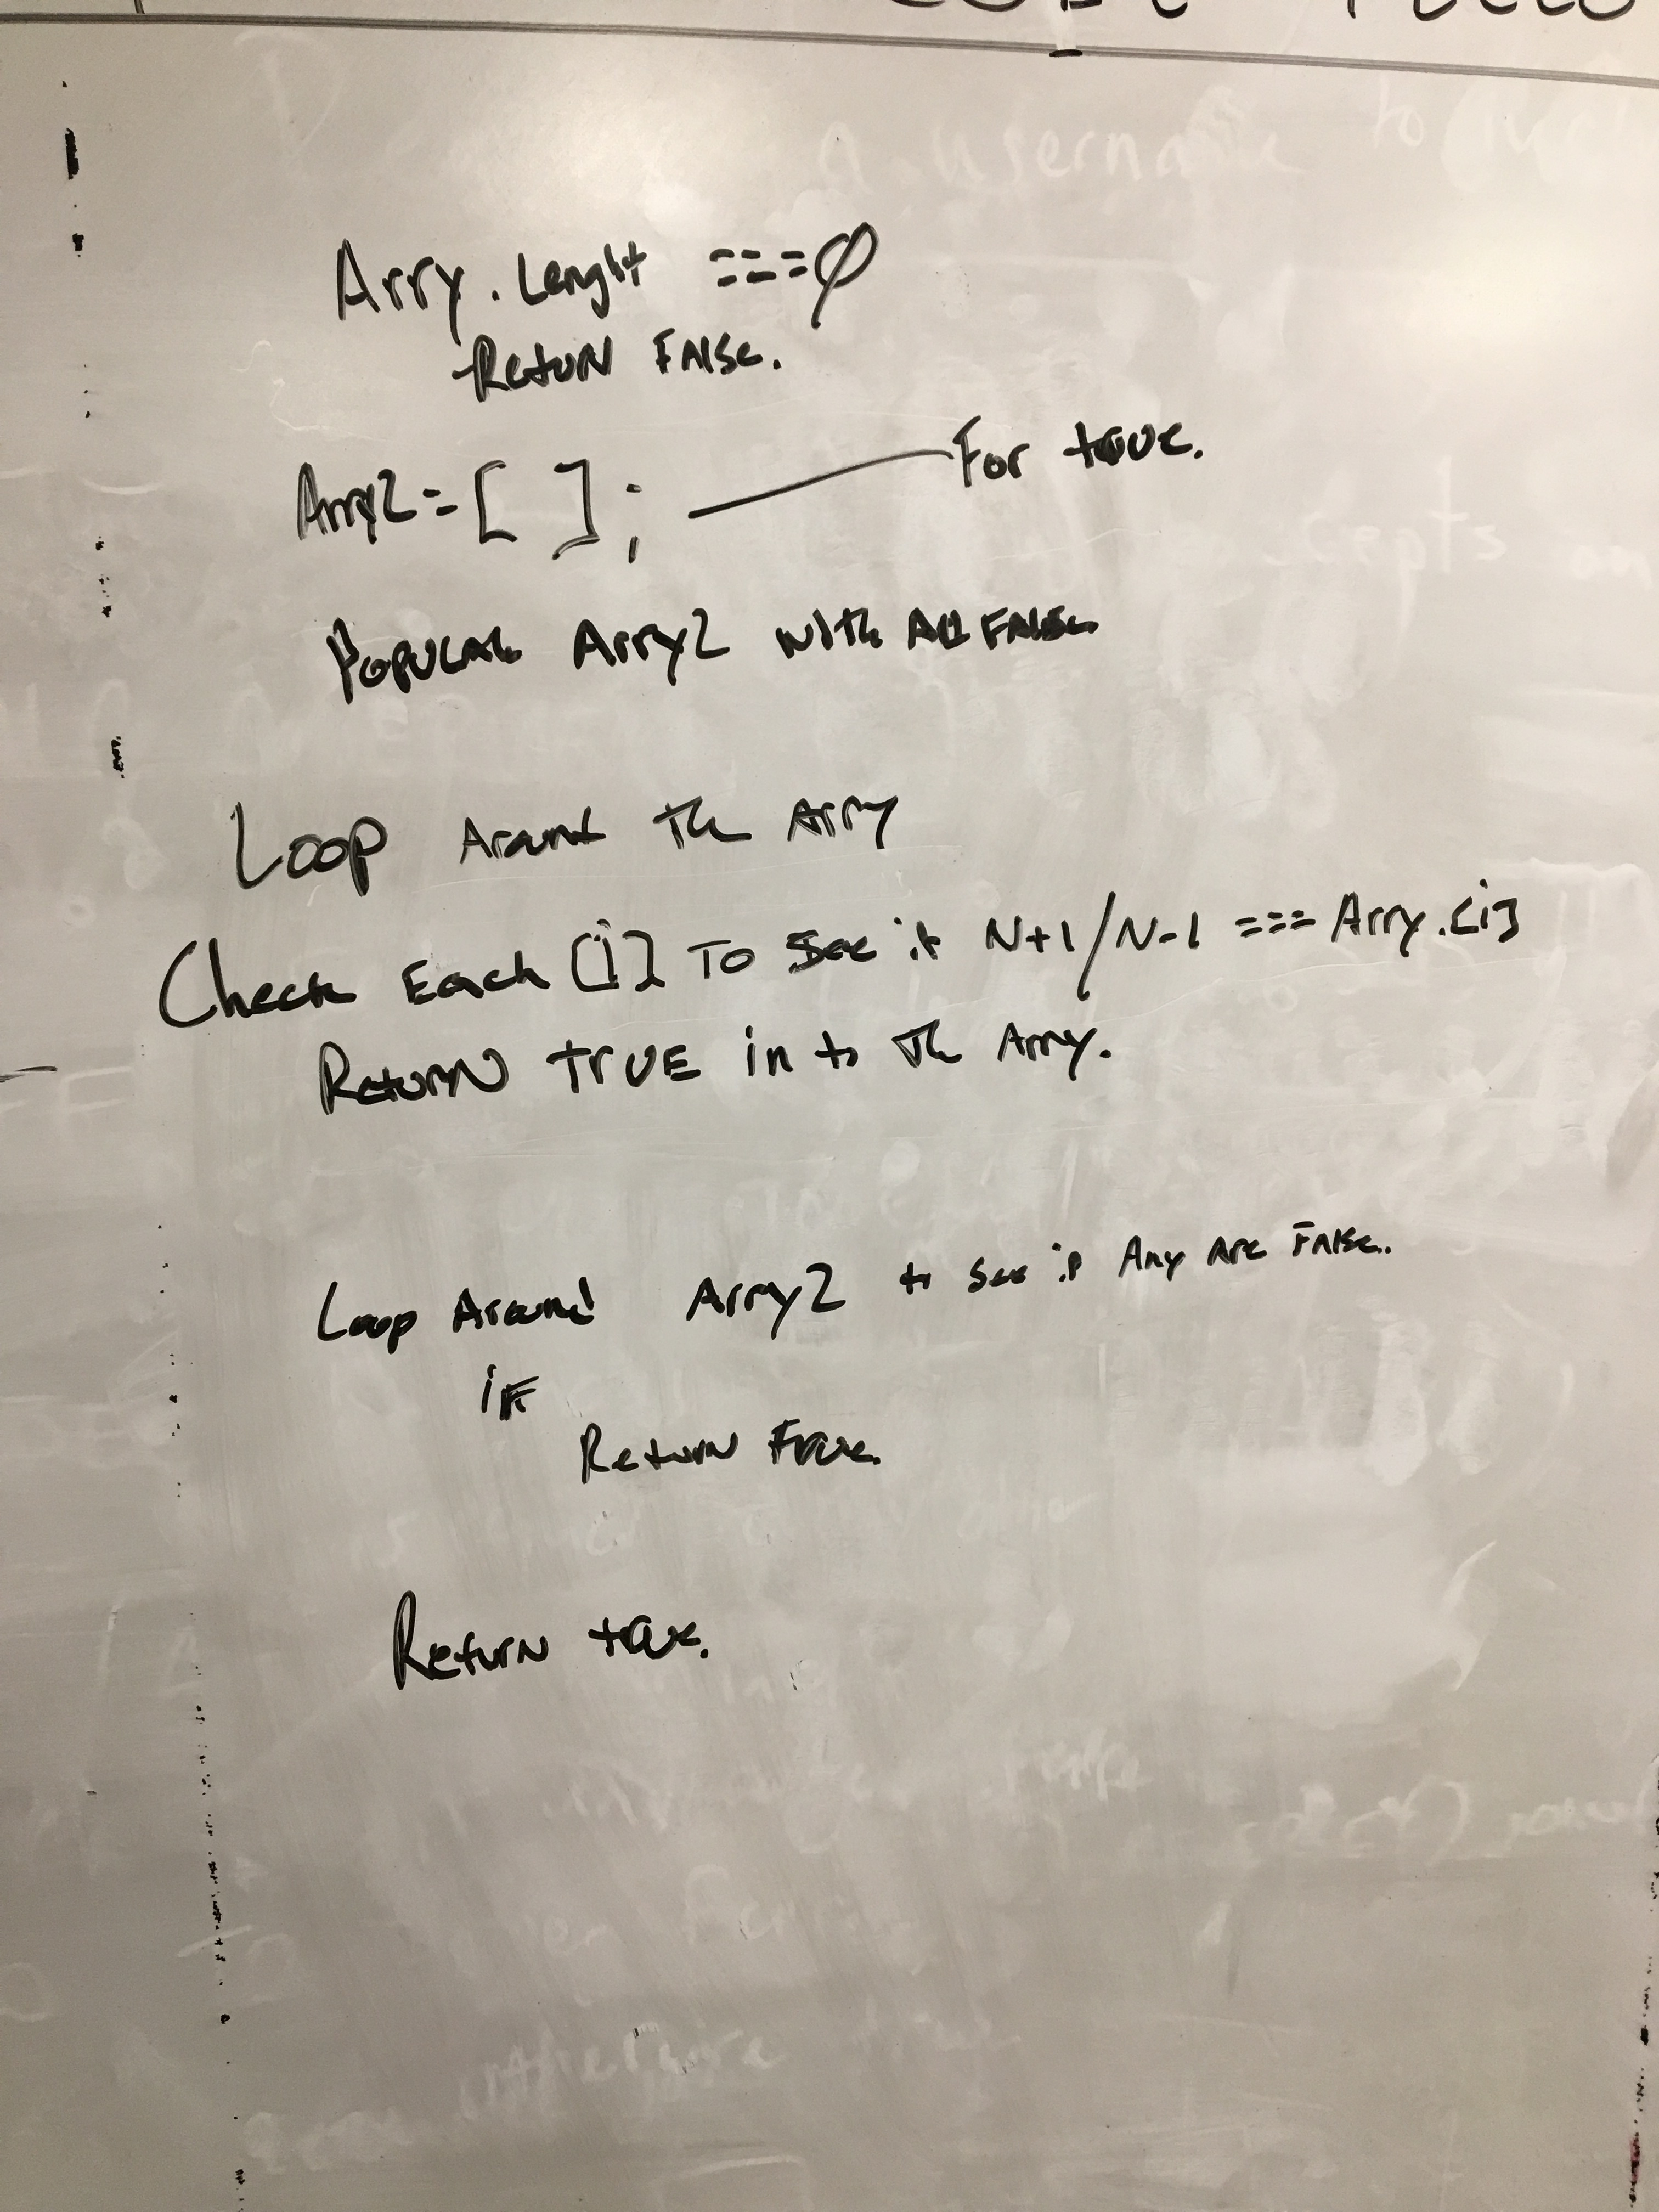 Arry.Lenght ===0
Return False.
Arry2 = [ ]; — For true.
Populate Arry2 with All False
Loop Around The Arry
Check Each [i] To See if N+1/N-1 === Arry.[i]
Return TRUE in to The Arry.
Loop Around Arry2 to see if Any Are False.
if
Return
Return true.